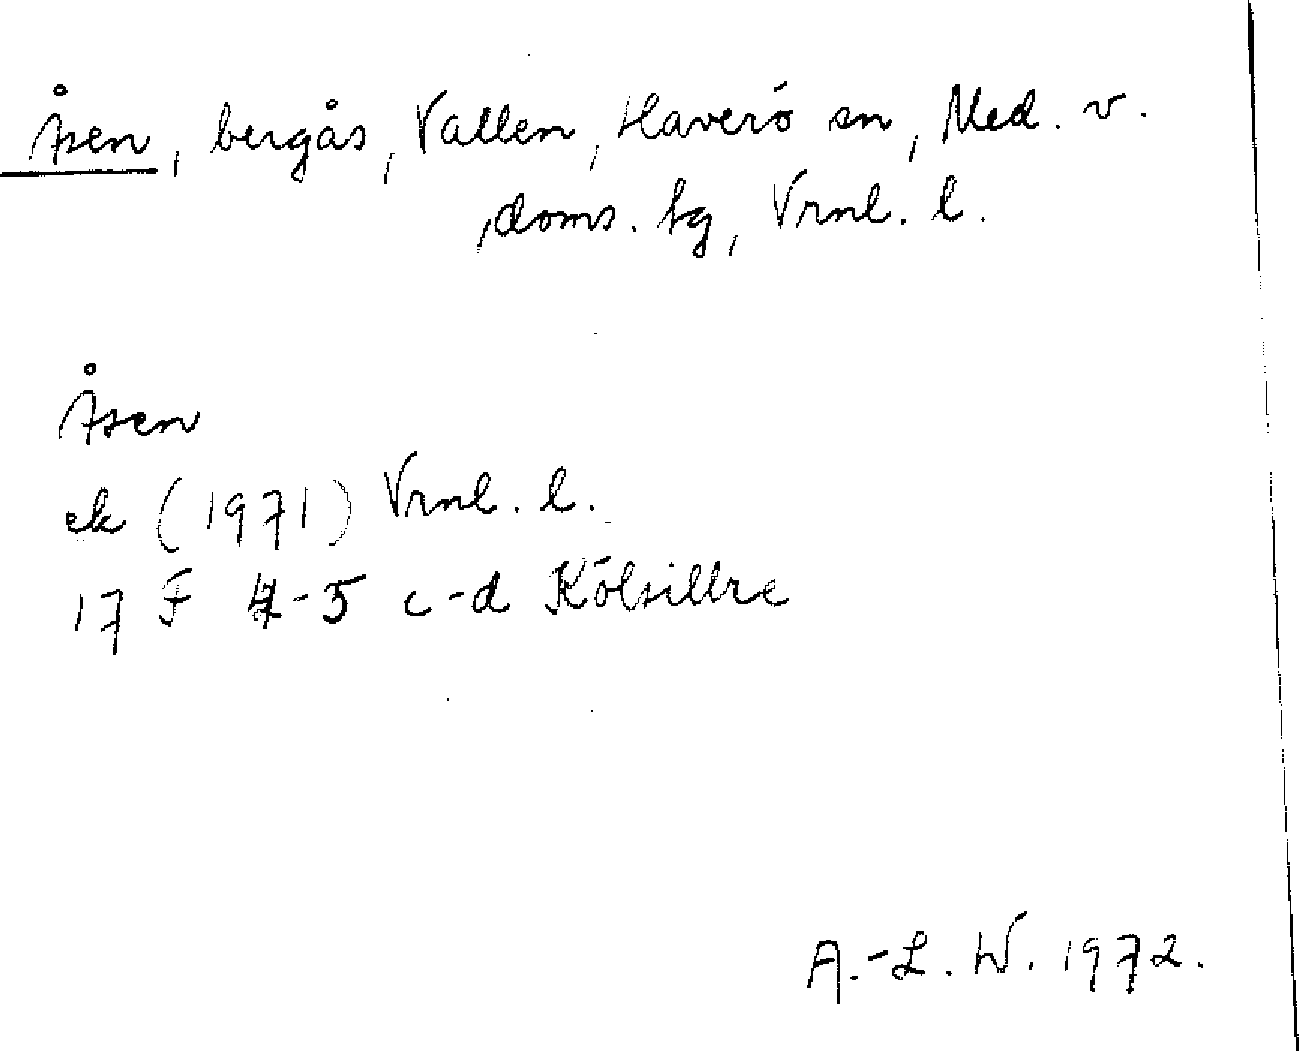 Åsen, bergås, Vallen, Haverö sn, Med. v.
doms. tg, Vrnl. l.
Åsen
ek (1971) Vrnl. l.
17 F 4-5 c-d Kölsillre
A.-L. W. 1972.